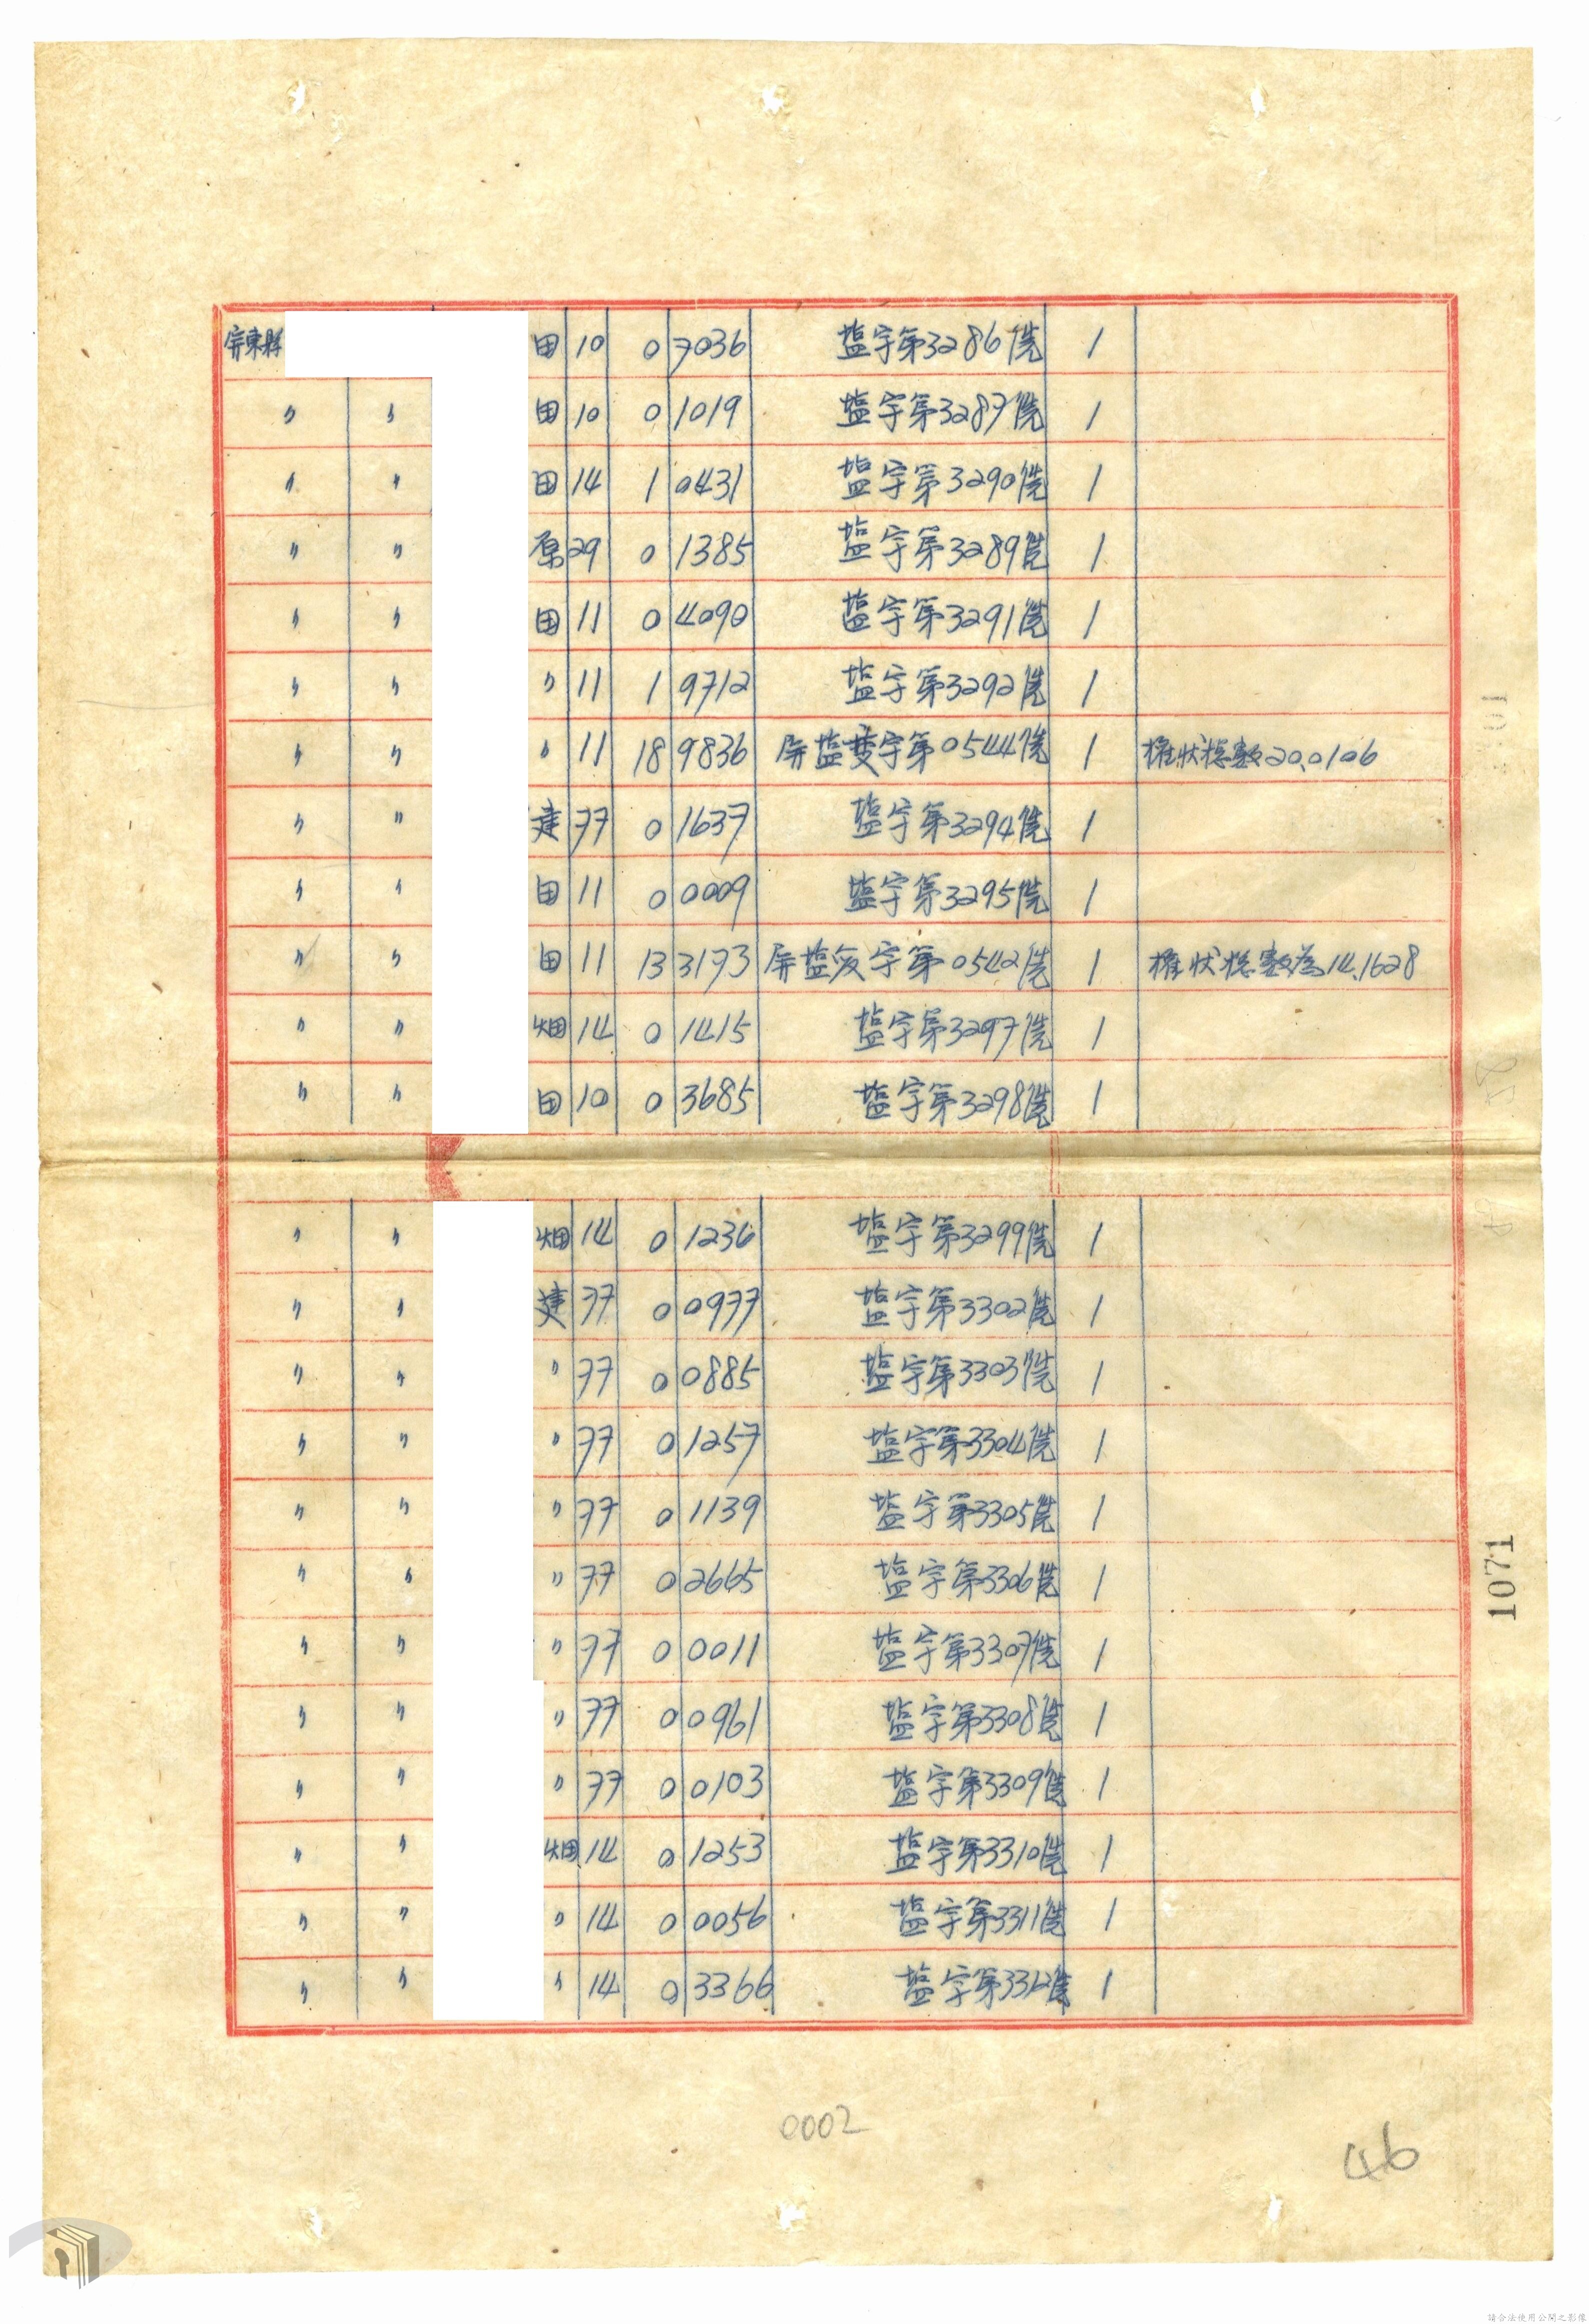 屏東縣 田 10 0 7036 塩字第3286號 1
〃 〃 田 10 0 1019 塩字第3287號 1
〃 〃 田 14 1 0431 塩字第3290號 1
〃 〃 原 29 0 1385 塩字第3289號 1
〃 〃 田 11 0 4090 塩字第3291號 1
〃 〃 〃 11 1 9712 塩字第3292號 1
〃 〃 〃 11 18 9836 屏塩变字第0544號 1 權狀總數20.0106
〃 〃 建 77 0 1637 塩字第3294號 1
〃 〃 田 11 0 0009 塩字第3295號 1
〃 〃 田 11 13 3173 屏塩变字第0542號 1 權狀總數為14.1628
〃 〃 畑 14 0 1415 塩字第3297號 1
〃 〃 田 10 0 3685 塩字第3298號 1
〃 〃 畑 14 0 1236 塩字第3299號 1
〃 〃 建 77 0 0977 塩字第3302號 1
〃 〃 〃 77 0 0885 塩字第3303號 1
〃 〃 〃 77 0 1257 塩字第3304號 1
〃 〃 〃 77 0 1139 塩字第3305號 1
〃 〃 〃 77 0 2665 塩字第3306號 1
〃 〃 〃 77 0 0011 塩字第3307號 1
〃 〃 〃 77 0 0961 塩字第3308號 1
〃 〃 〃 77 0 0103 塩字第3309號 1
〃 〃 畑 14 0 1253 塩字第3310號 1
〃 〃 〃 14 0 0056 塩字第3311號 1
〃 〃 〃 14 0 3366 塩字第3312號 1
1071
0002
46
請合法使用公開之影像